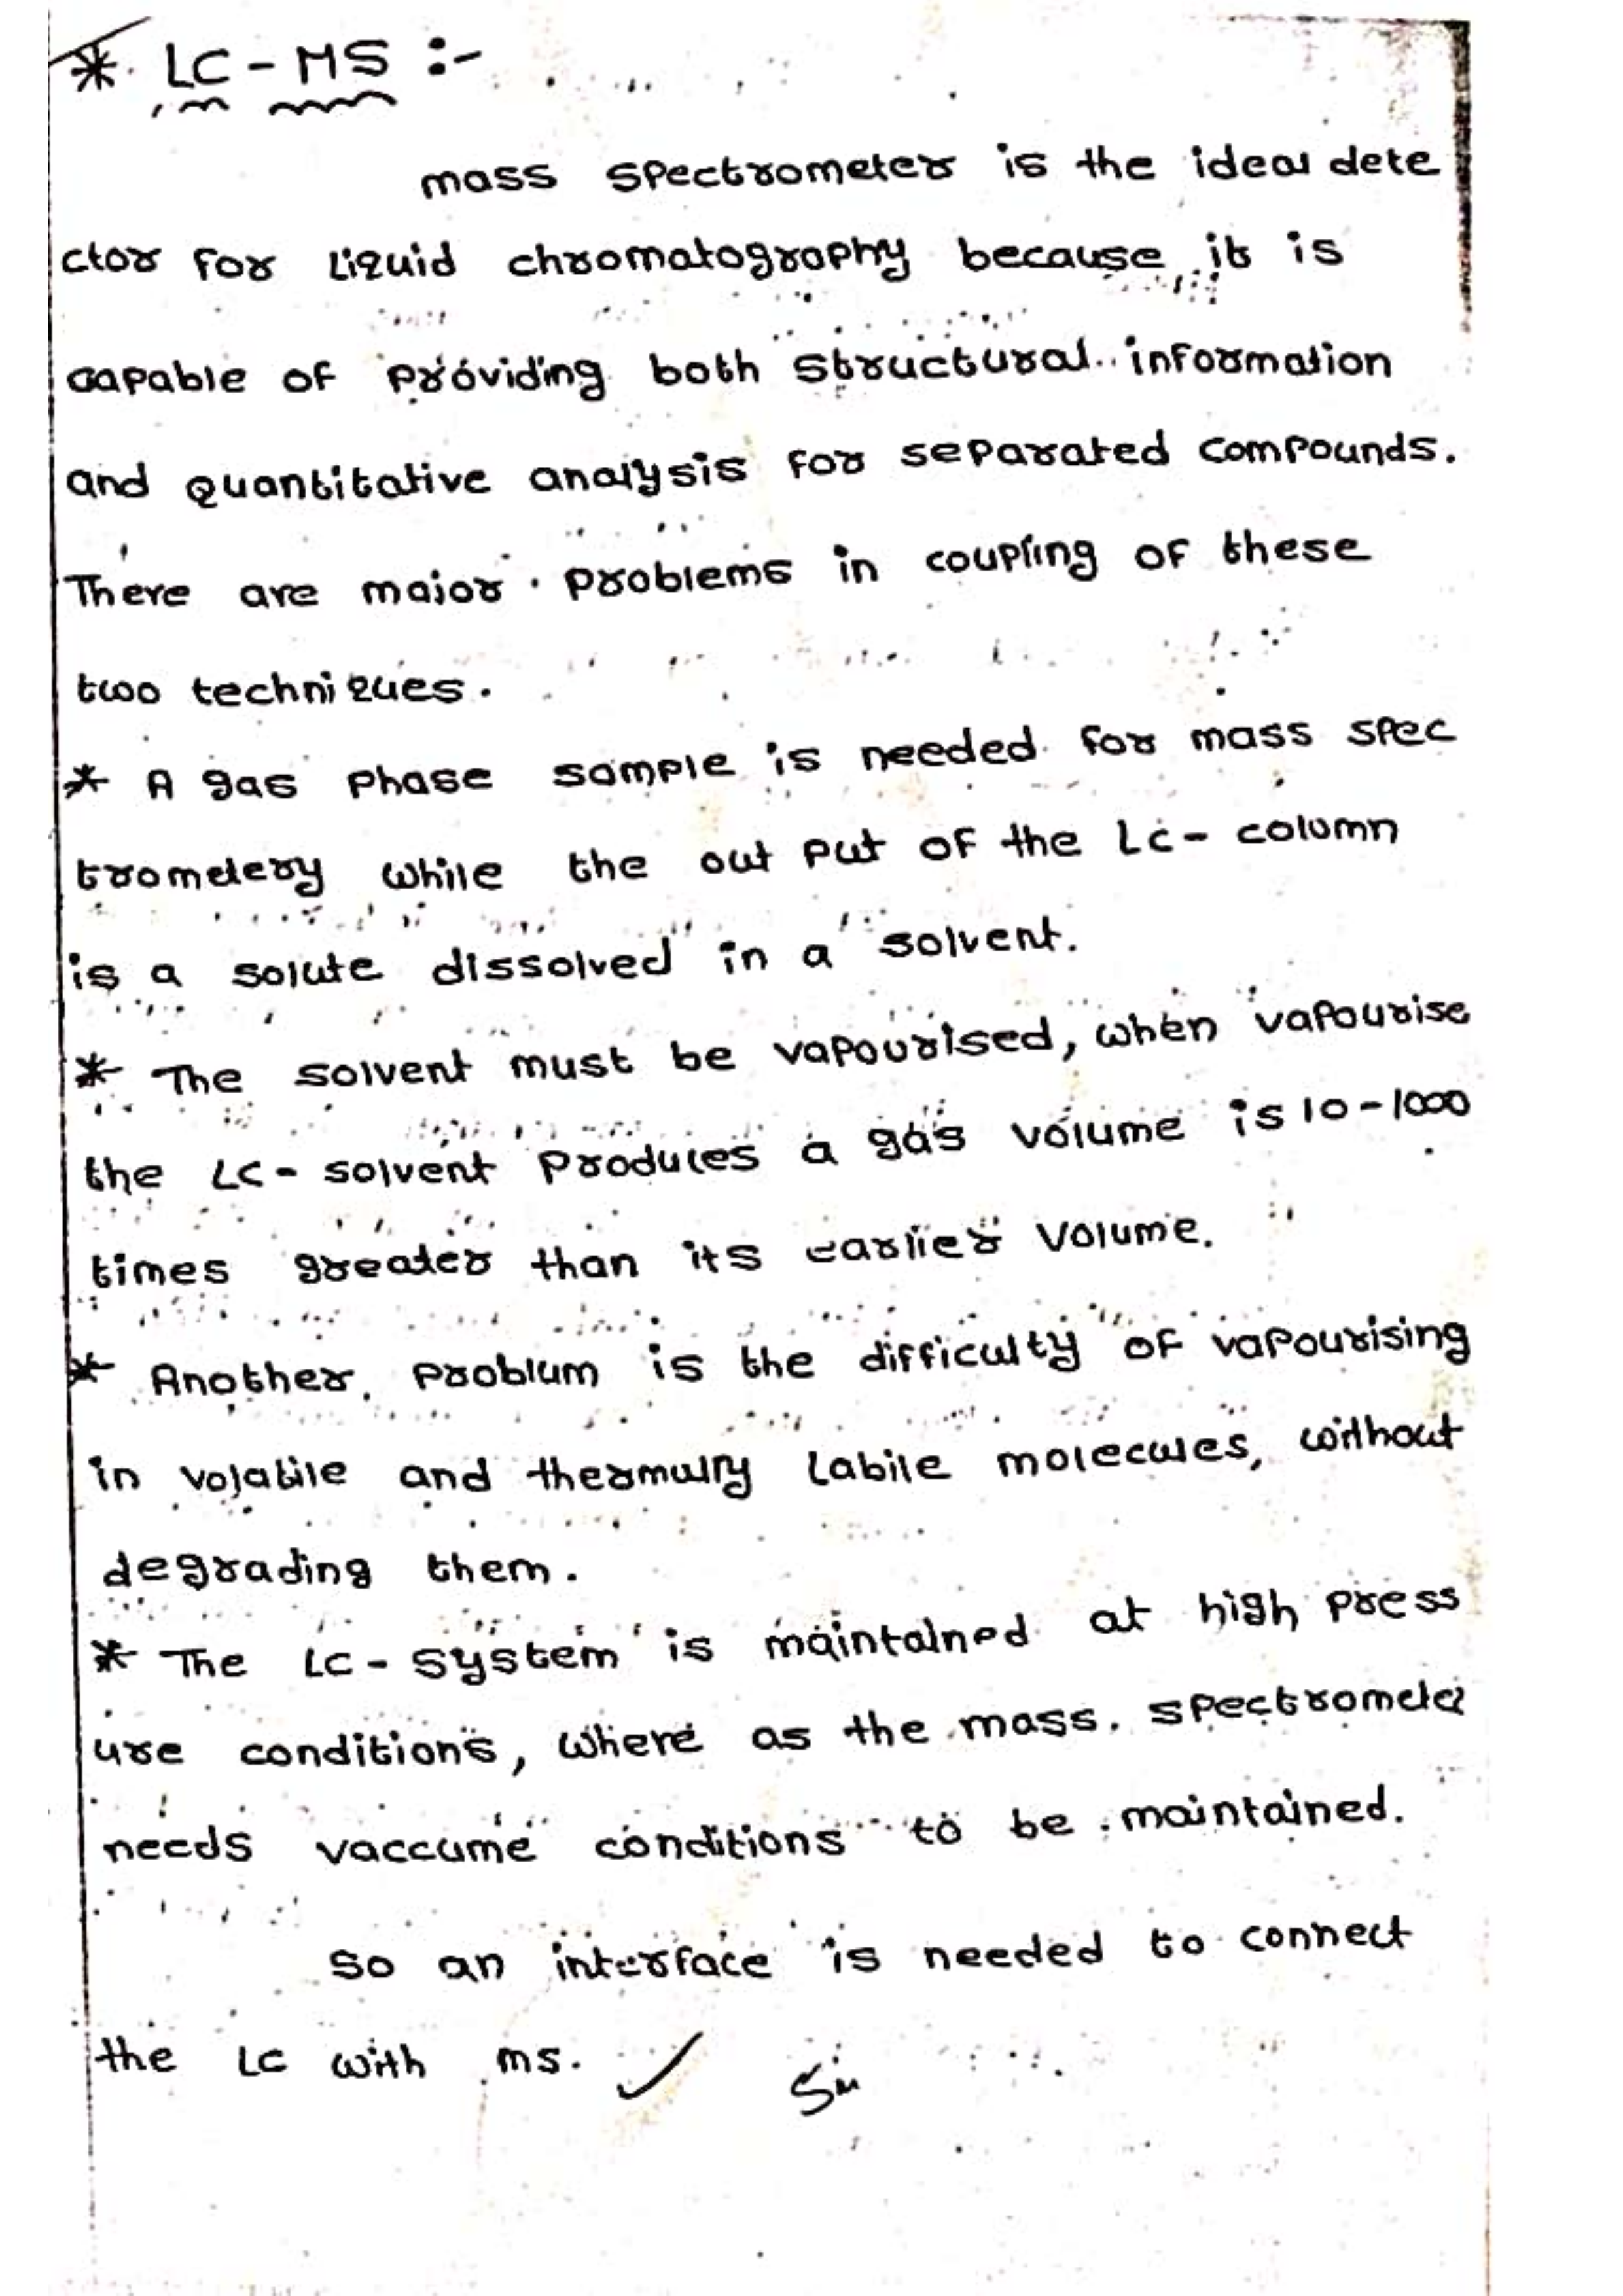 * LC - MS :-
mass spectrometer is the ideal dete
ctor for Liquid chromatography because it is
capable of providing both structural information
and quantitative analysis for separated compounds.
There are major problems in coupling of these
two techniques.
* A gas phase sample is needed for mass spec
trometery while the out put of the LC- column
is a solute dissolved in a solvent.
* The solvent must be vapourised, when vapourise
the LC- solvent produces a gas volume is 10-1000
times greater than its earlier volume.
* Another problum is the difficulty of vapourising
in volatile and thermully labile molecules, without
degrading them.
* The LC- system is maintained at high press
ure conditions, where as the mass spectrometer
needs vaccume conditions to be maintained.
So an interface is needed to connect
the LC with ms.